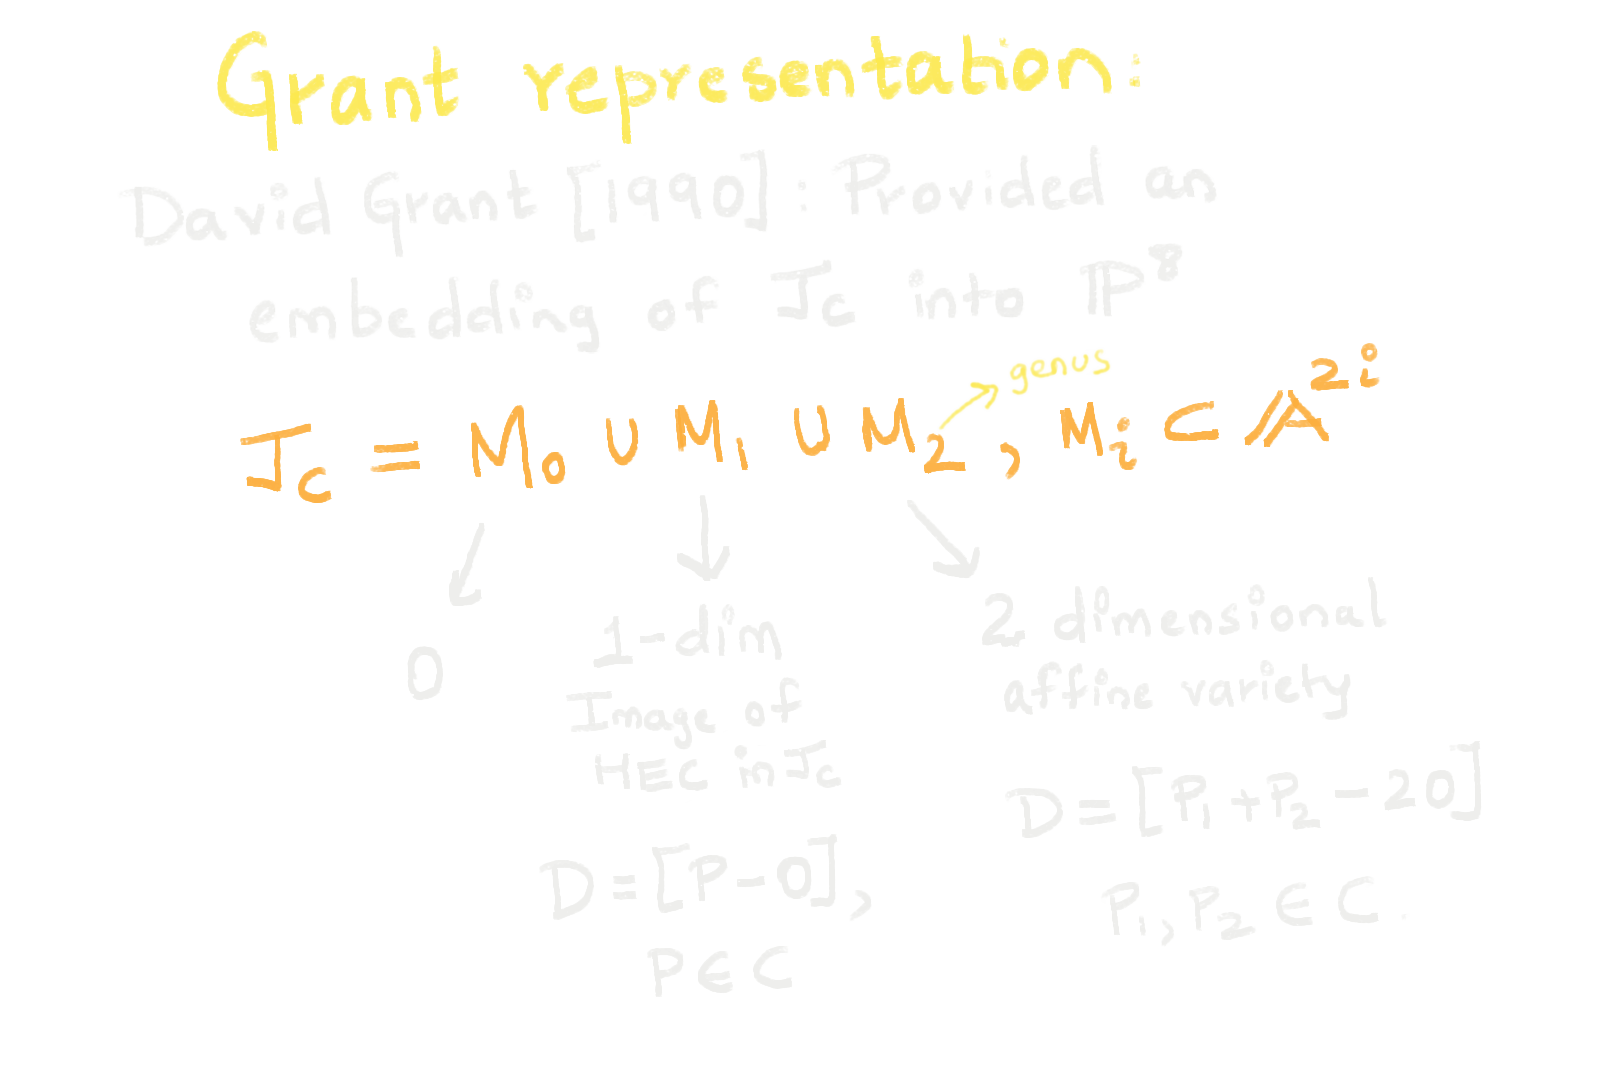 Grant representation:
David Grant [1990]: Provided an
embedding of J_C into ℙ^8
genus
J_C = M_0 ∪ M_1 ∪ M_2, M_i ⊂ 𝔸^{2i}
0
1-dim
Image of
HEC in J_C
D = [P-O],
P ∈ C
2 dimensional
affine variety
D = [P_1 + P_2 - 2O]
P_1, P_2 ∈ C.